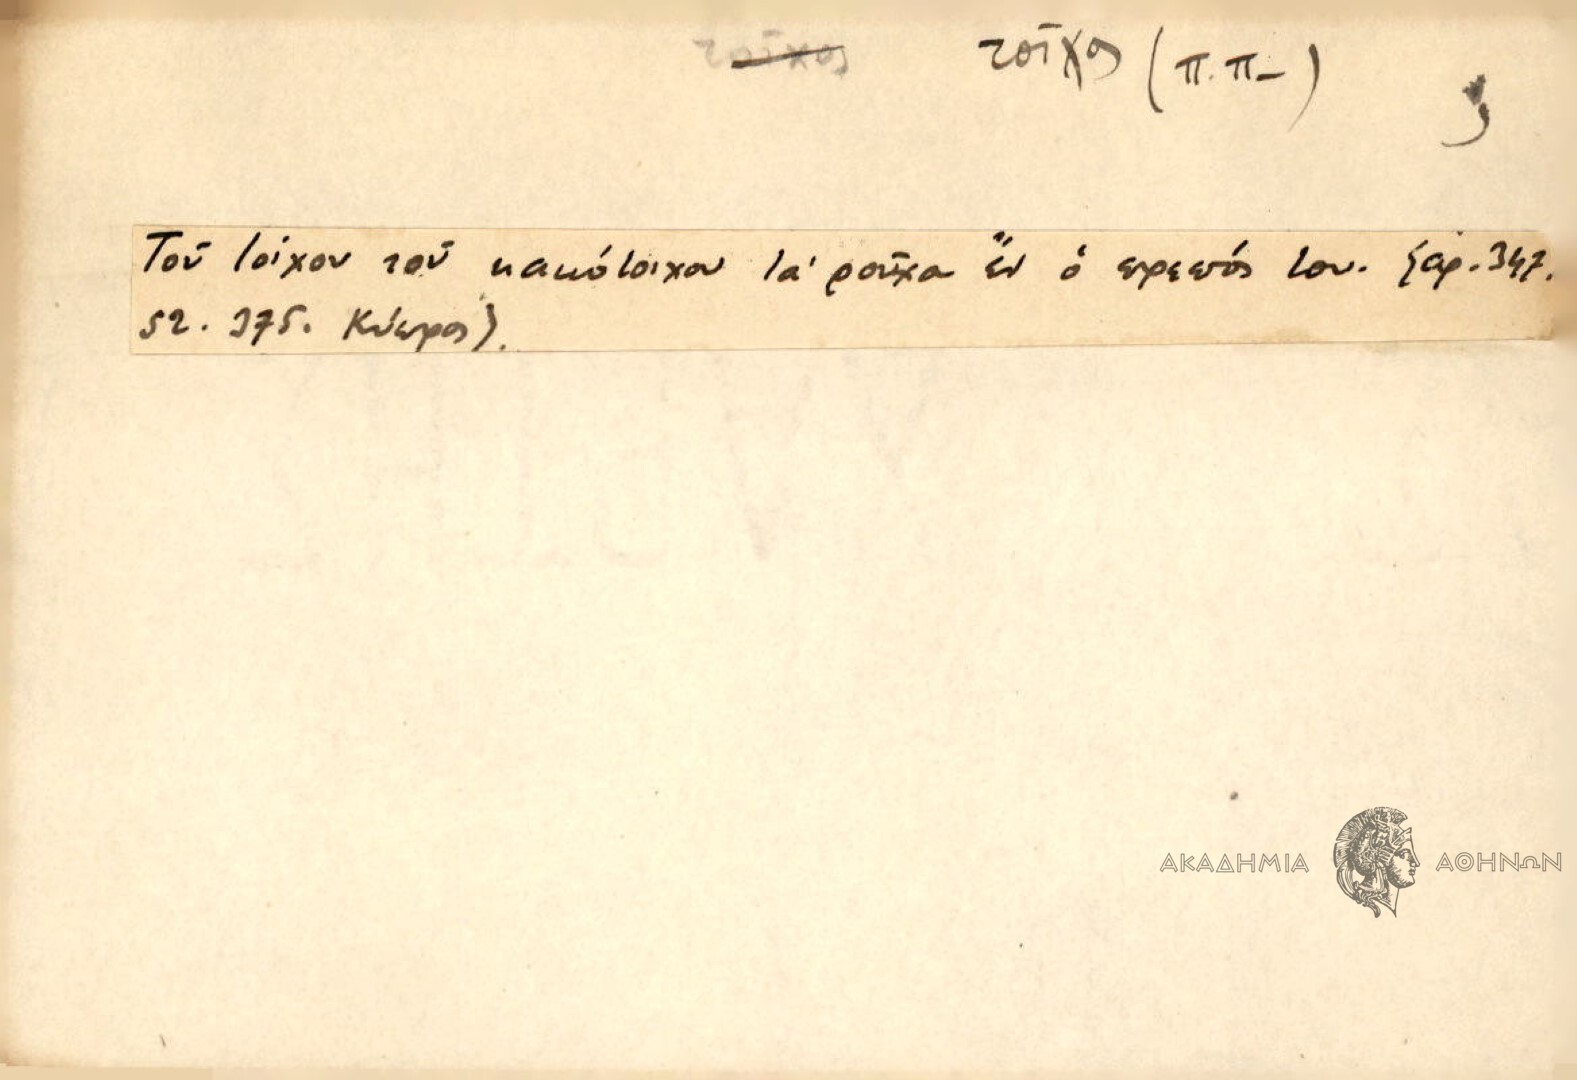 τοῖχος τοῖχος (π.π-) 3
Τοῦ τοίχου τοῦ κακότοιχου τὰ ροῦχα ἔν ὁ πρεπός του. (ἀρ. 347.
52. 375. Κύπρος).
ΑΚΑΔΗΜΙΑ ΑΘΗΝΩΝ